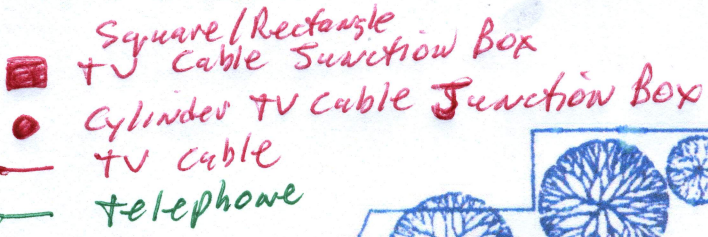 Square/Rectangle
TV Cable Junction Box
Cylinder TV Cable Junction Box
TV Cable
telephone